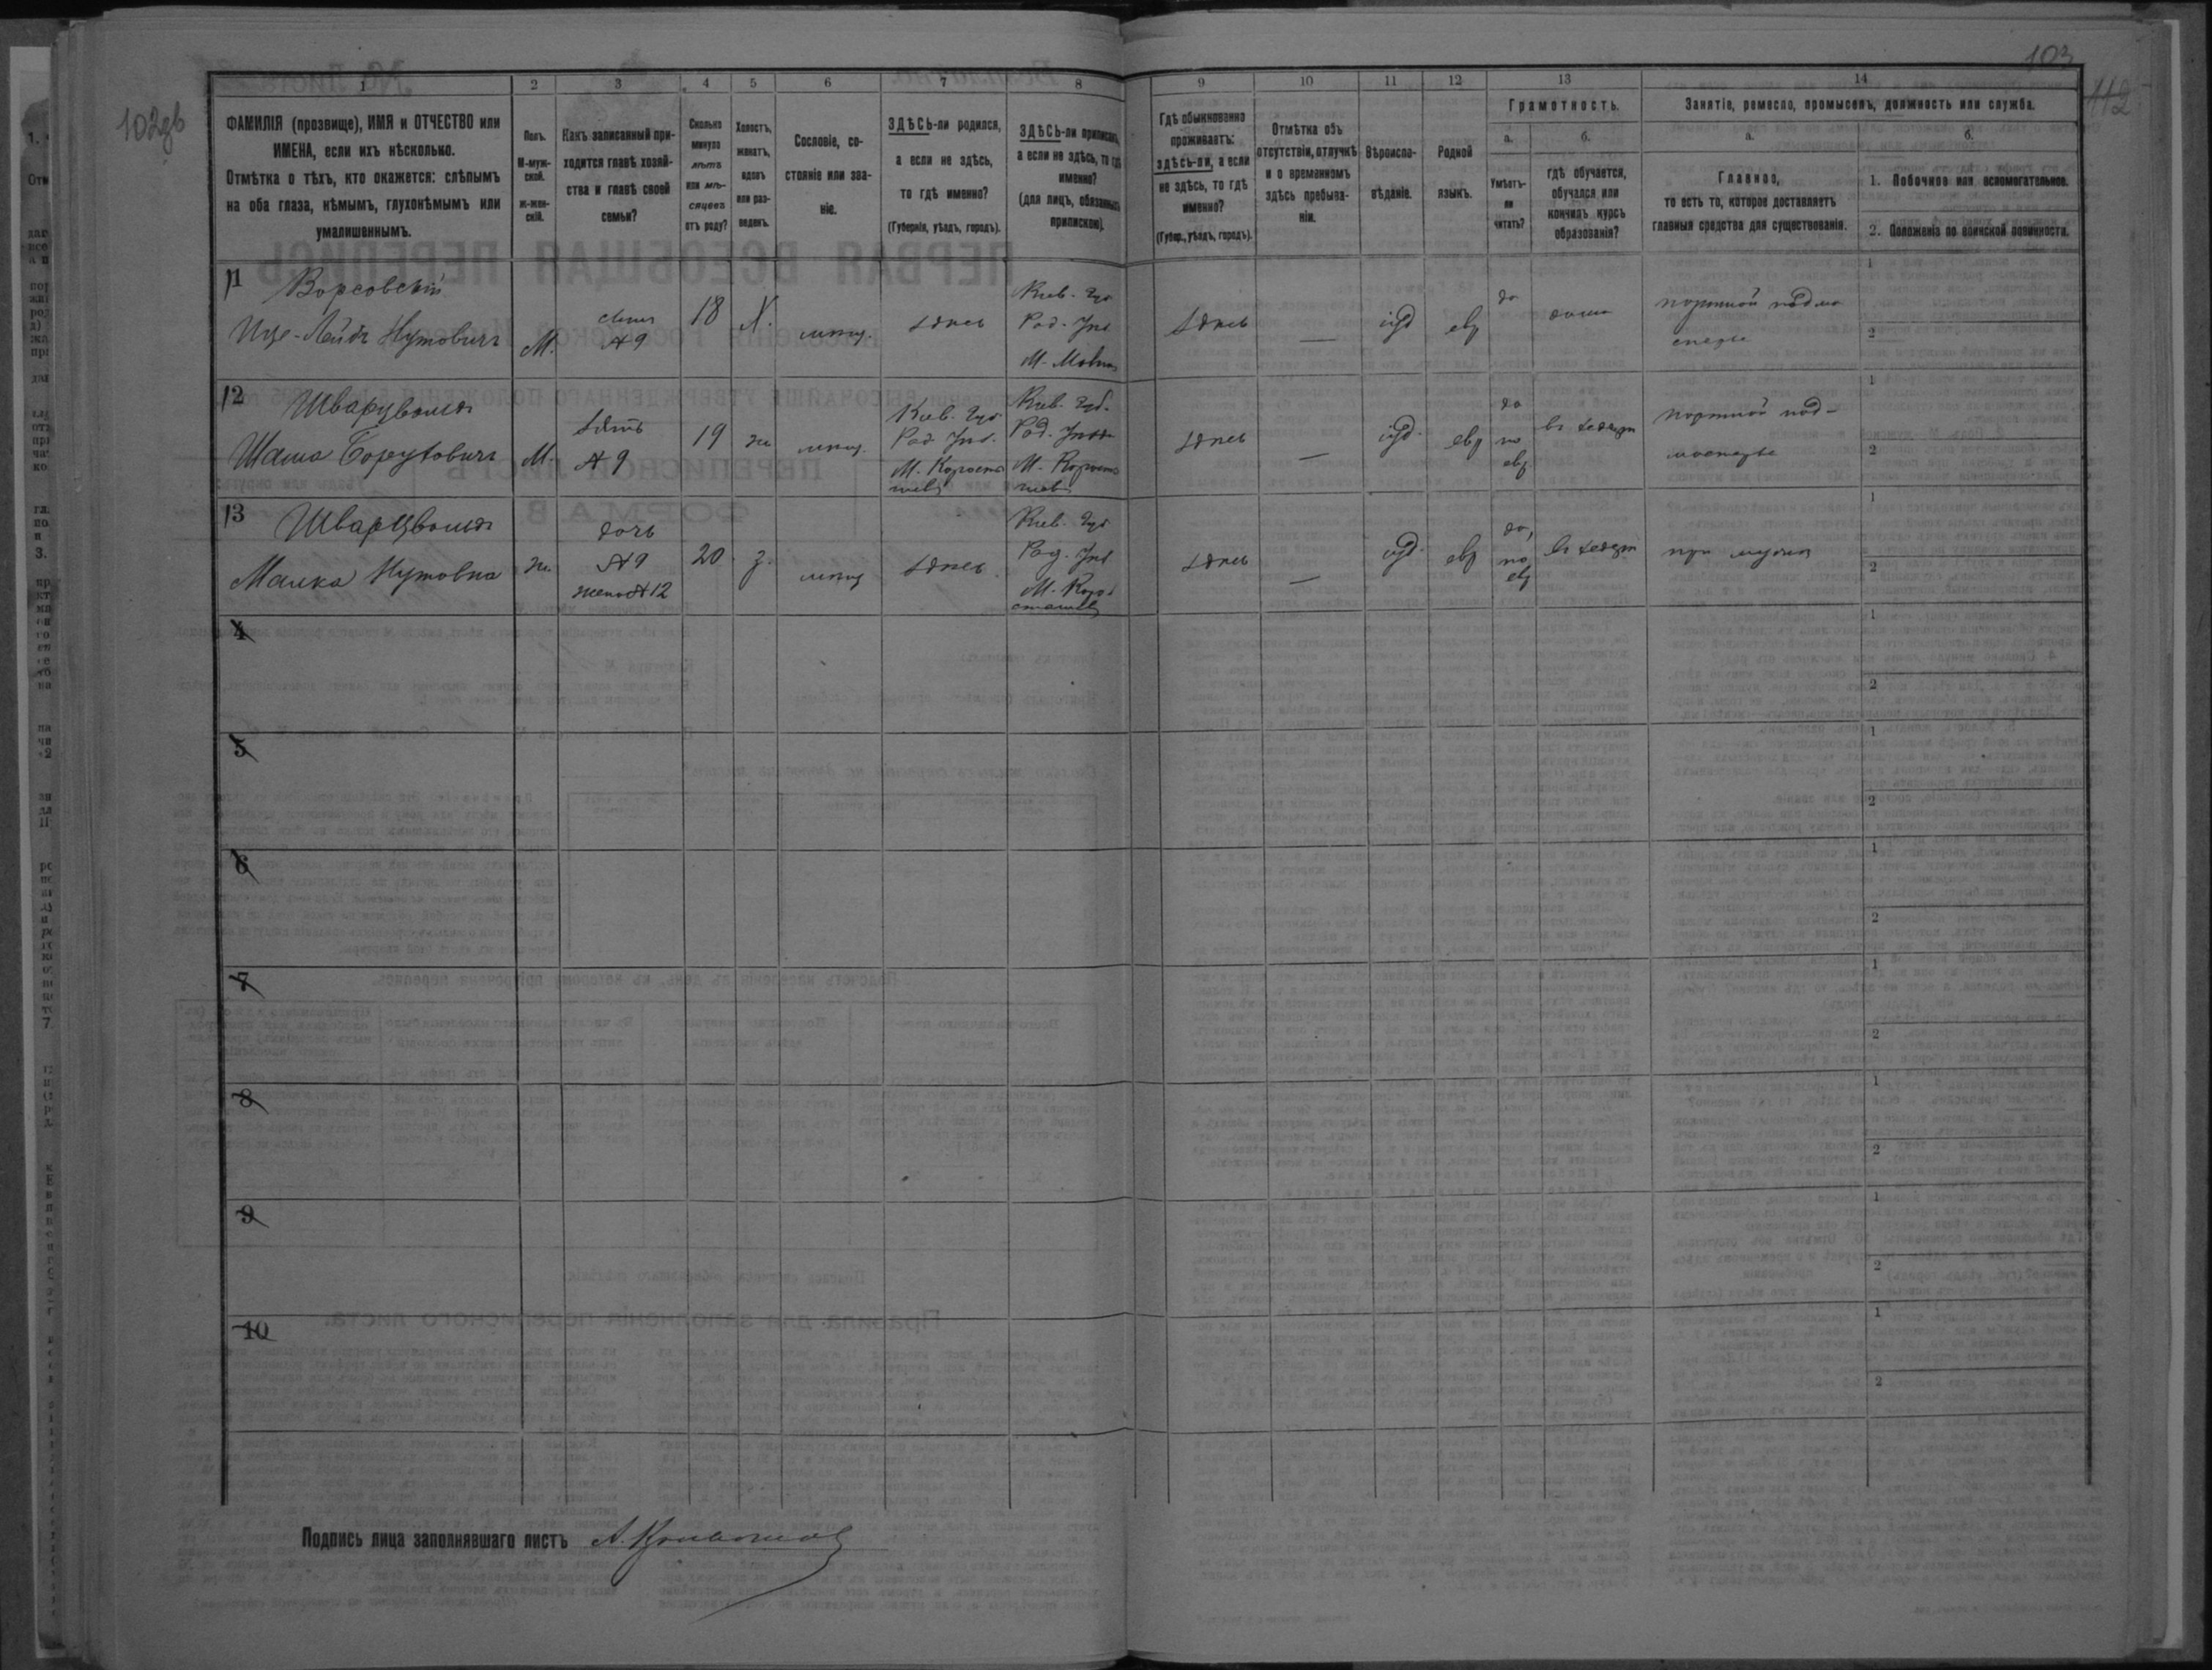 103
112
102 об
1 2 3 4 5 6 7 8 9 10 11 12 13 14
ФАМИЛІЯ (прозвище), ИМЯ и ОТЧЕСТВО или
ИМЕНА, если ихъ нѣсколько.
Отмѣтка о тѣхъ, кто окажется: слѣпымъ
на оба глаза, нѣмымъ, глухонѣмымъ или
умалишеннымъ.
Полъ.
М-муж-
ской.
Ж-жен-
скій.
Какъ записанный при-
ходится главѣ хозяй-
ства и главѣ своей
семьи?
Сколько
минуло
лѣтъ
или мѣ-
сяцевъ
отъ роду?
Холостъ,
женатъ,
вдовъ
или раз-
веденъ.
Сословіе, со-
стояніе или зва-
ніе.
ЗДѢСЬ-ли родился,
а если не здѣсь,
то гдѣ именно?
(Губернія, уѣздъ, городъ).
ЗДѢСЬ-ли приписанъ,
а если не здѣсь, то гдѣ
именно?
(для лицъ, обязанныхъ
припискою).
Гдѣ обыкновенно
проживаетъ:
здѣсь-ли, а если
не здѣсь, то гдѣ
именно?
(Губер., уѣздъ, городъ).
Отмѣтка объ
отсутствіи, отлучкѣ
и о временномъ
здѣсь пребыва-
ніи.
Вѣроиспо-
вѣданіе.
Родной
языкъ.
Грамотность.
а. б.
Умѣетъ-
ли
читать?
гдѣ обучается,
обучался или
кончилъ курсъ
образованія?
Занятіе, ремесло, промыселъ, должность или служба.
а. б.
Главное,
то есть то, которое доставляетъ
главныя средства для существованія.
1. Побочное или вспомогательное.
2. Положеніе по воинской повинности.
11
Ворсовскій
Ице-Лейбъ Нутовичъ
М.
сынъ
№ 9
18
Х.
мѣщ.
здѣсь
Кіев. Губ
Рад. Уѣз
здѣсь
—
іуд
евр
да
дома
портной подма
стерье
1
2
12
Шварцбомъ
М.
зять
№ 9
19
ж
мѣщ.
Кіев. Губ
Рад. Уѣз.
М. Корости
шевъ
Кіев. Губ.
Рад. Уѣзд
М. Корости
шевъ
здѣсь
—
іуд.
евр
да
по
евр
въ хедерѣ
портной под-
мастерье
1
2
13
Шварцбомъ
Малка Нутовна
ж.
дочь
№ 9
жена № 12
20
з.
мѣщ
здѣсь
Кіев. Губ
Рад. Уѣз
М. Коро-
стышевъ
здѣсь
—
іуд.
евр
да,
по
евр
въ хедерѣ
при мужѣ
1
2
4
1
2
5
1
2
6
1
2
7
1
2
8
1
2
9
1
2
10
1
2
Подпись лица заполнявшаго листъ